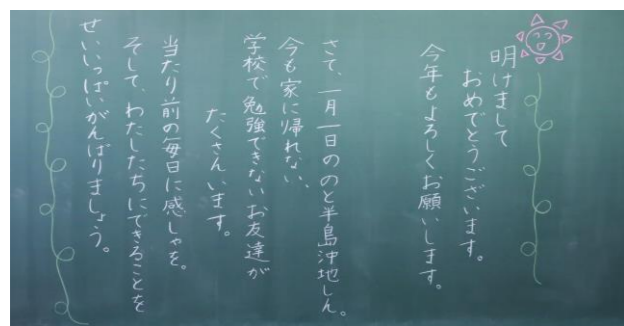 明けまして
おめでとうございます。
今年もよろしくお願いします。
さて、一月一日ののと半島沖地しん。
今も家に帰れない、
学校で勉強できないお友達が
たくさんいます。
当たり前の毎日に感しゃを。
そして、わたしたちにできることを
せいいっぱいがんばりましょう。